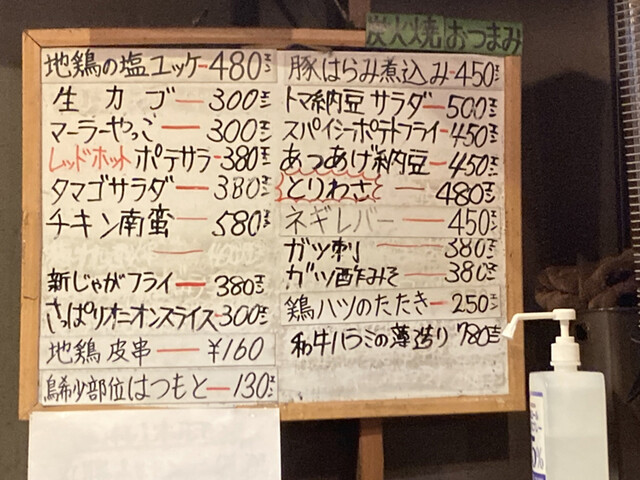 炭火焼 おつまみ
地鶏の塩ユッケ-480エン
生カブ-300エン
マーラーやっこ-300エン
レッドホットポテサラ-380エン
タマゴサラダ-380エン
チキン南蛮-580エン
新じゃがフライ-380エン
さっぱりオニオンスライス-300エン
地鶏皮串-¥160
鳥希少部位はつもと-130エン
豚はらみ煮込み-450エン
トマ納豆サラダ-500エン
スパイシーポテトフライ-450エン
あつあげ納豆-450エン
とりわさ-480エン
ネギレバー-450エン
ガツ刺-380エン
ガツ酢みそ-380エン
鶏ハツのたたき-250エン
和牛ハラミの薄造り780エン